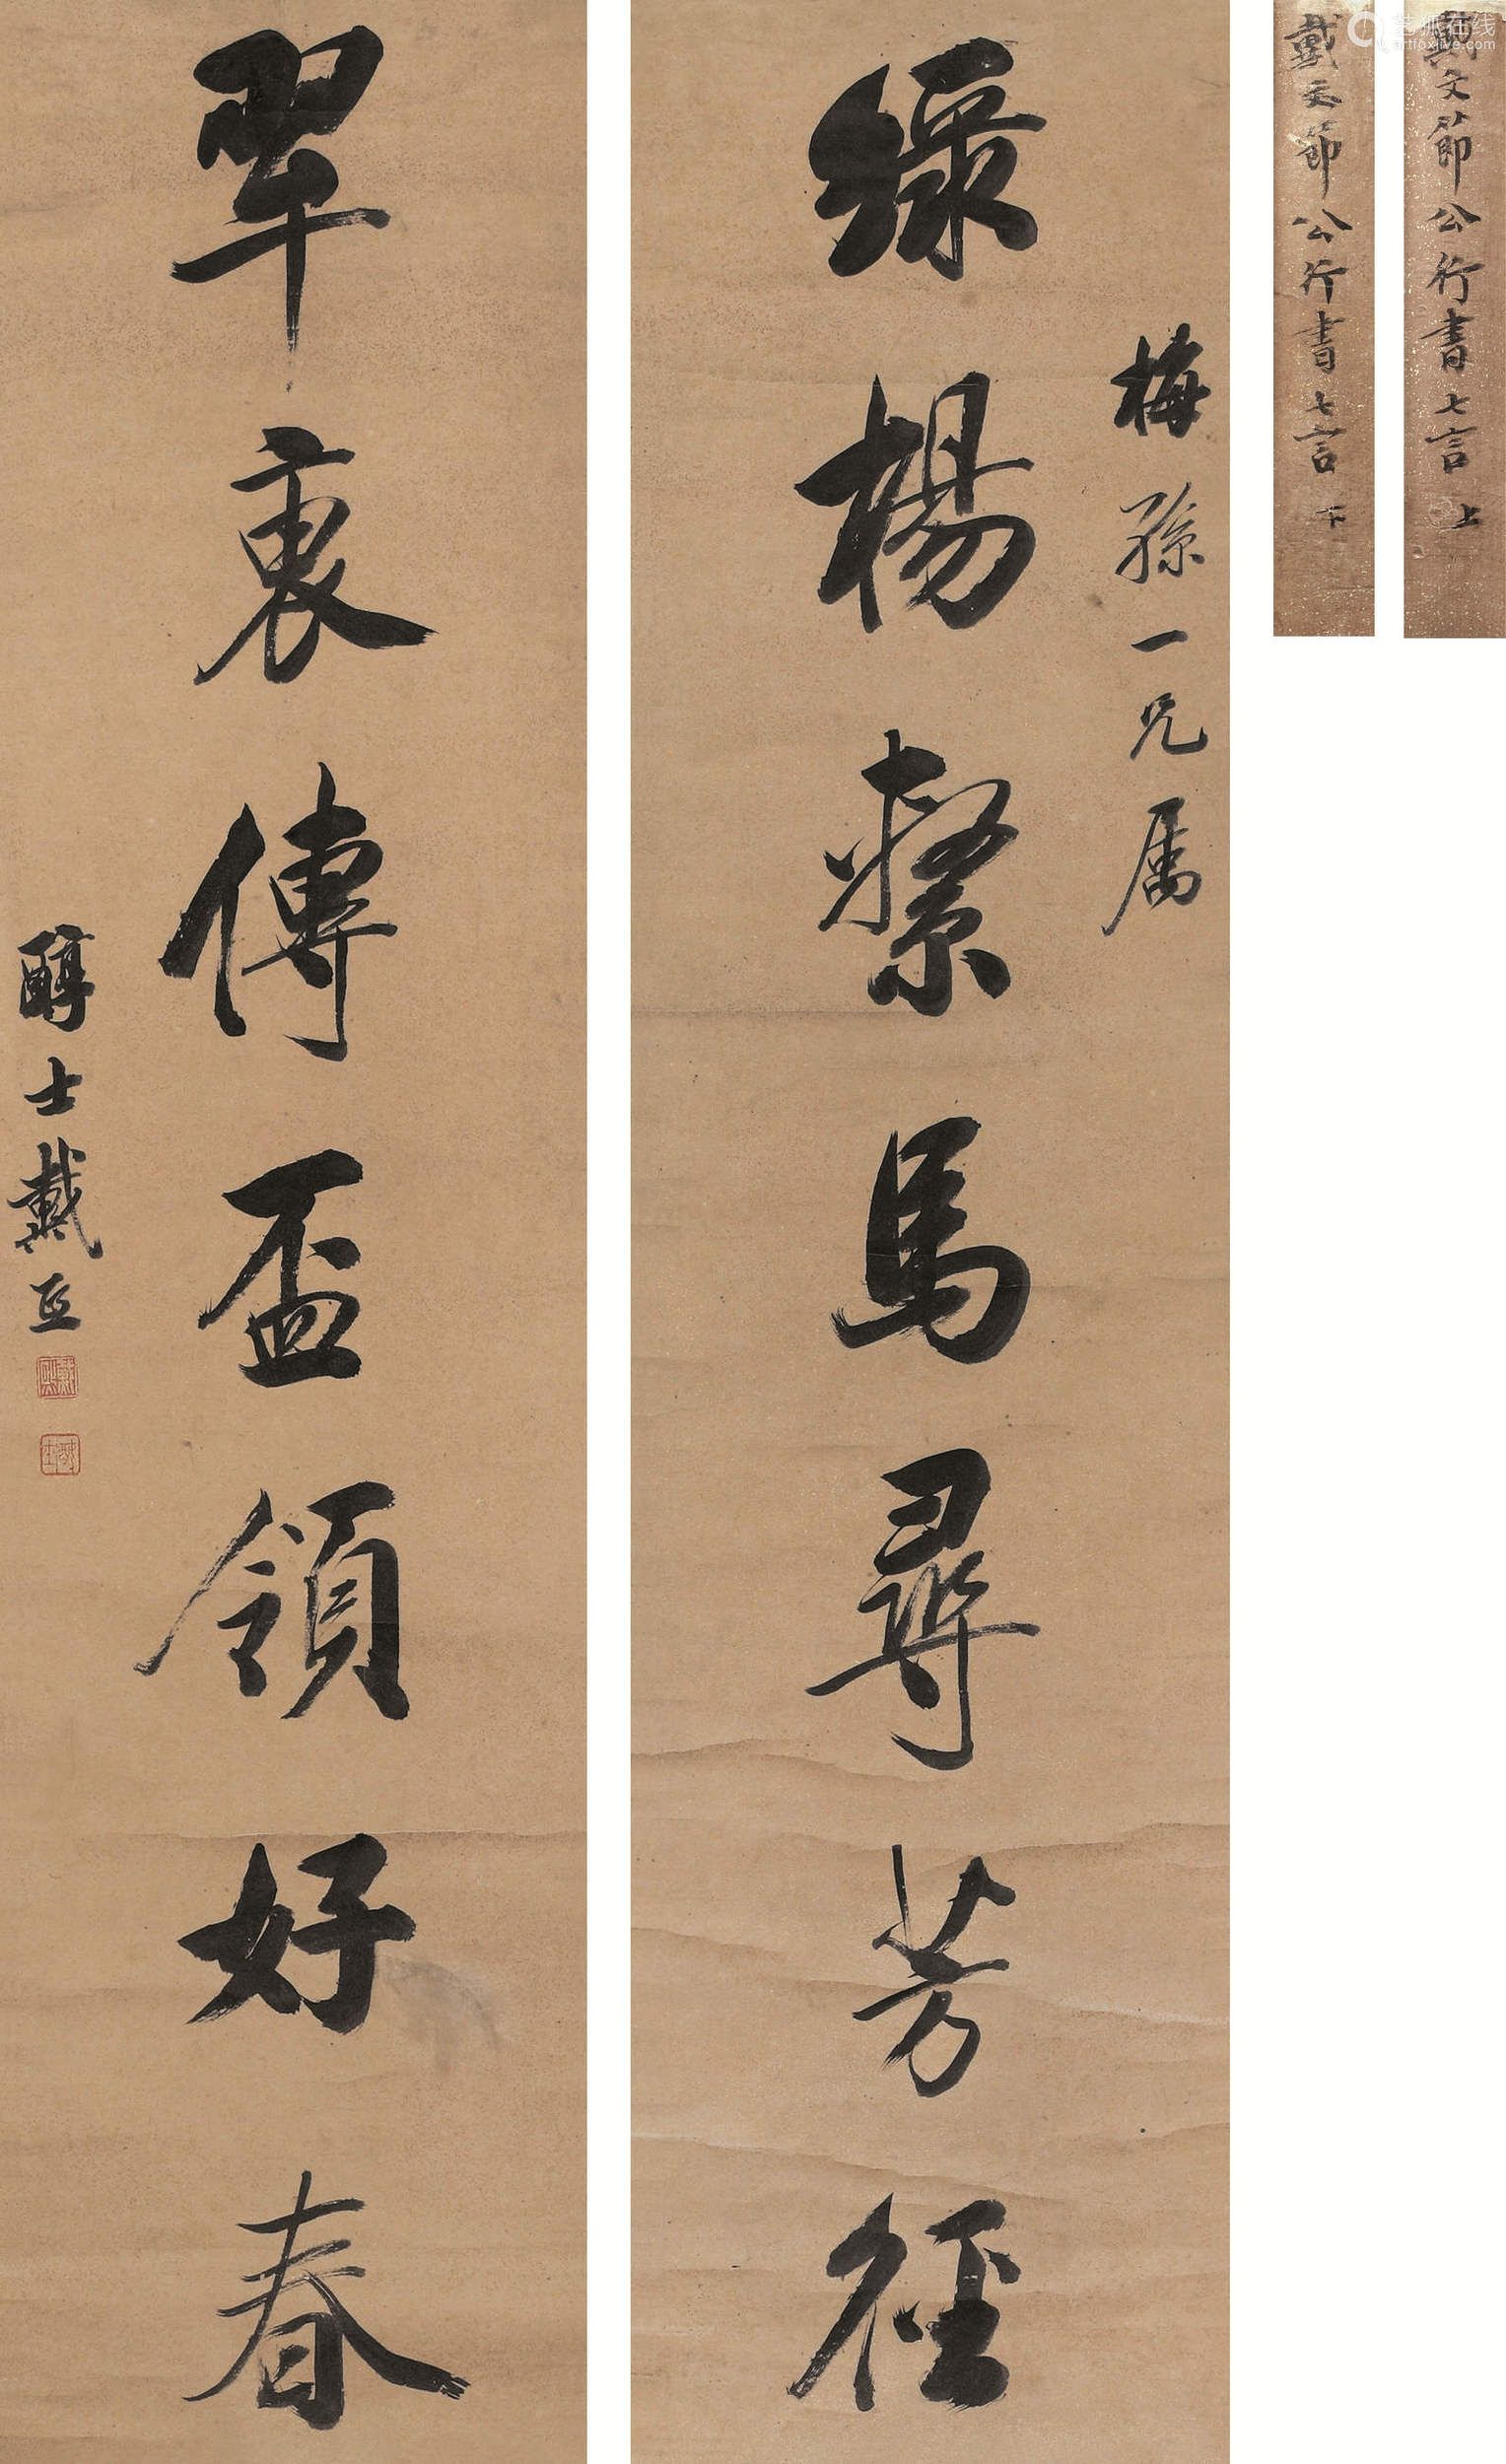 艺狐在线
artfoxlive.com
戴文節公行書七言 上
戴文節公行書七言 下
梅孫一兄屬
綠楊繫馬尋芳徑
翠傳盃領好春
醇士戴熙
戴熙
醇士